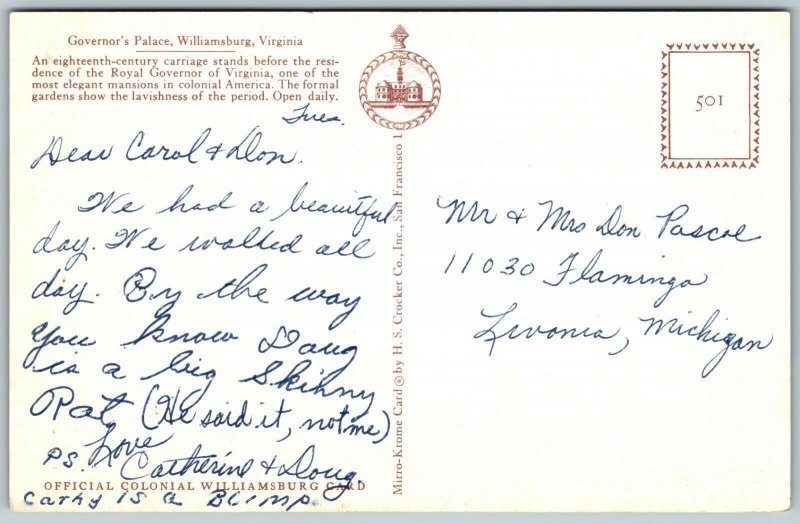 Governor's Palace, Williamsburg, Virginia
An eighteenth-century carriage stands before the resi-
dence of the Royal Governor of Virginia, one of the
most elegant mansions in colonial America. The formal
gardens show the lavishness of the period. Open daily.
Tues.
Dear Carol & Don.
We had a beautiful
day. We walked all
day. By the way
you know Doug
is a big Skinny
Rat, (He said it, not me)
Love
Catherine & Doug.
PS.
Cathy is a Blimp.
OFFICIAL COLONIAL WILLIAMSBURG CARD
Mirro-Krome Card ® by H. S. Crocker Co., Inc., San Francisco 1
501
Mr & Mrs Don Pascoe
11030 Flamingo
Livonia, Michigan